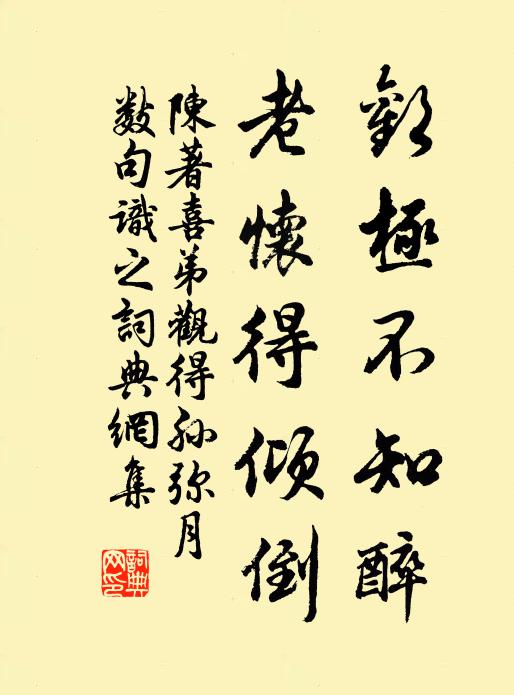 歡極不知醉
老懷得傾倒
陳著喜弟觀得孙弥月
數句識之詞典網集
詞典网印